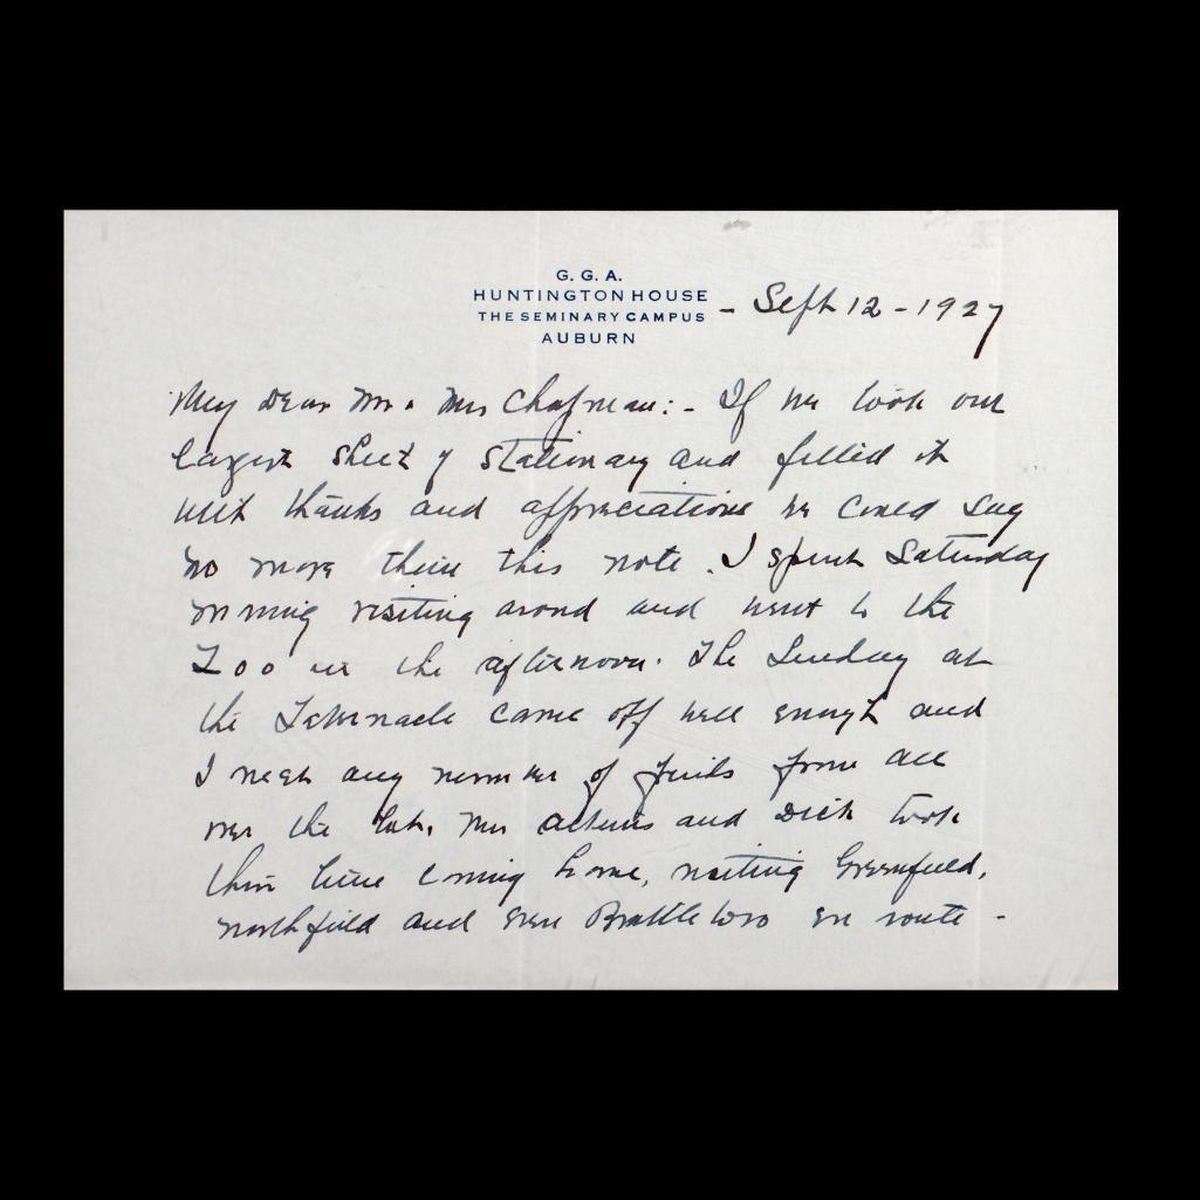 G. G. A.
HUNTINGTON HOUSE
THE SEMINARY CAMPUS
AUBURN
- Sept 12 - 1927
My dear Mr & Mrs Chapman: - If we took our
largest sheet of stationary and filled it
with thanks and appreciations we could say
no more than this note. I spent Saturday
morning visiting around and went to the
Zoo in the afternoon. The Sunday at
the Tabernacle came off well enough and
I met any number of friends from all
over the Mrs and Dick took
their time coming home, visiting Greenfield,
Northfield and even Brattleboro en route -